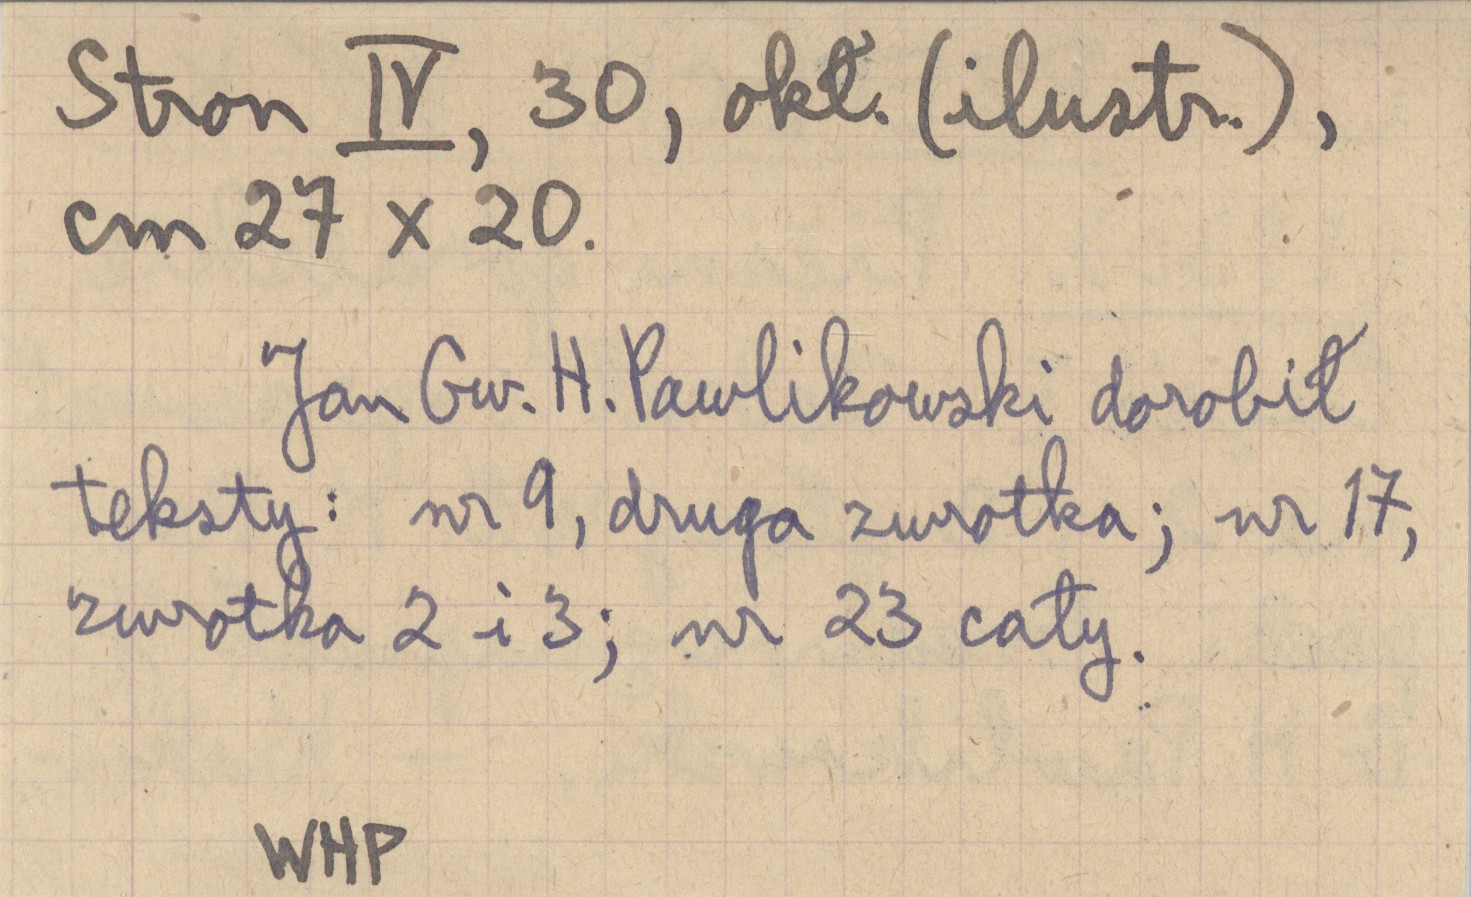 Stron IV, 30, okł. (ilustr.),
cm 27 x 20.
Jan Gw. H. Pawlikowski dorobił
teksty: nr 9, druga zwrotka; nr 17,
zwrotka 2 i 3; nr 23 cały.
WHP